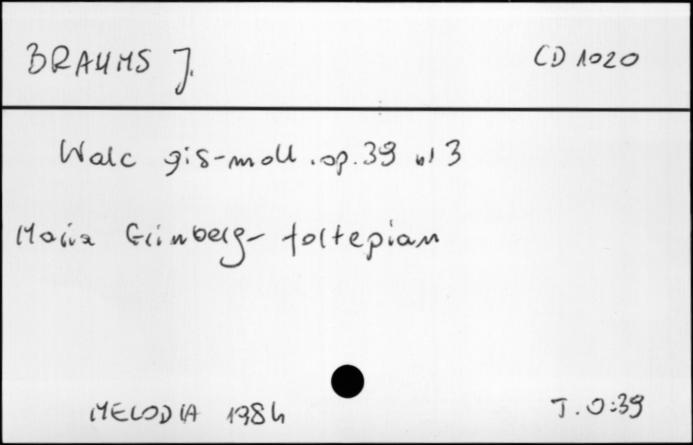 BRAHMS J. CD 1020
Walc gis-moll op. 39 nr 3
Maria Grinberg - fortepian
MELODIA 1984 T. 0:39